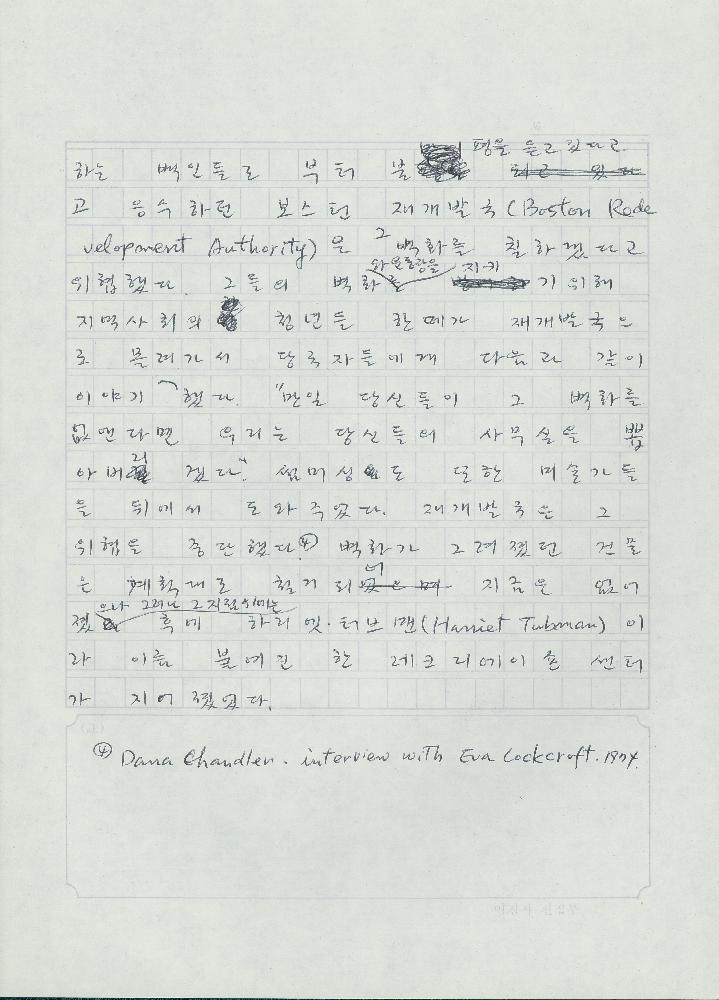 평을 듣고 있다고
하는 백인들로 부터 불
고 응수하던 보스턴 재개발국(Boston Rede
velopment Authority)은 그 벽화를 칠하겠다고
위협했다. 그들의 벽화 지키기 위해
지역사회의 청년들 한떼가 재개발국으
로 몰려가서 당국자들에게 다음과 같이
이야기했다. "만일 당신들이 그 벽화를
없앤다면 우리는 당신들의 사무실을 뽑
아버리겠다". 썸머싱도 또한 미술가들
을 뒤에서 도와주었다. 재개발국은 그
위협을 중단했다④ 벽화가 그려졌던 건물
은 계획대로 철거되어 지금은 없어
졌으나 그러나 그 지점 위에는
후에 하리엣·터브맨(Harriet Tubman) 이
라 이름 붙여진 한 레크리에이숀 센터
가 지어졌었다.
④ Dana Chandler. interview with Eva Cockcroft. 1974.